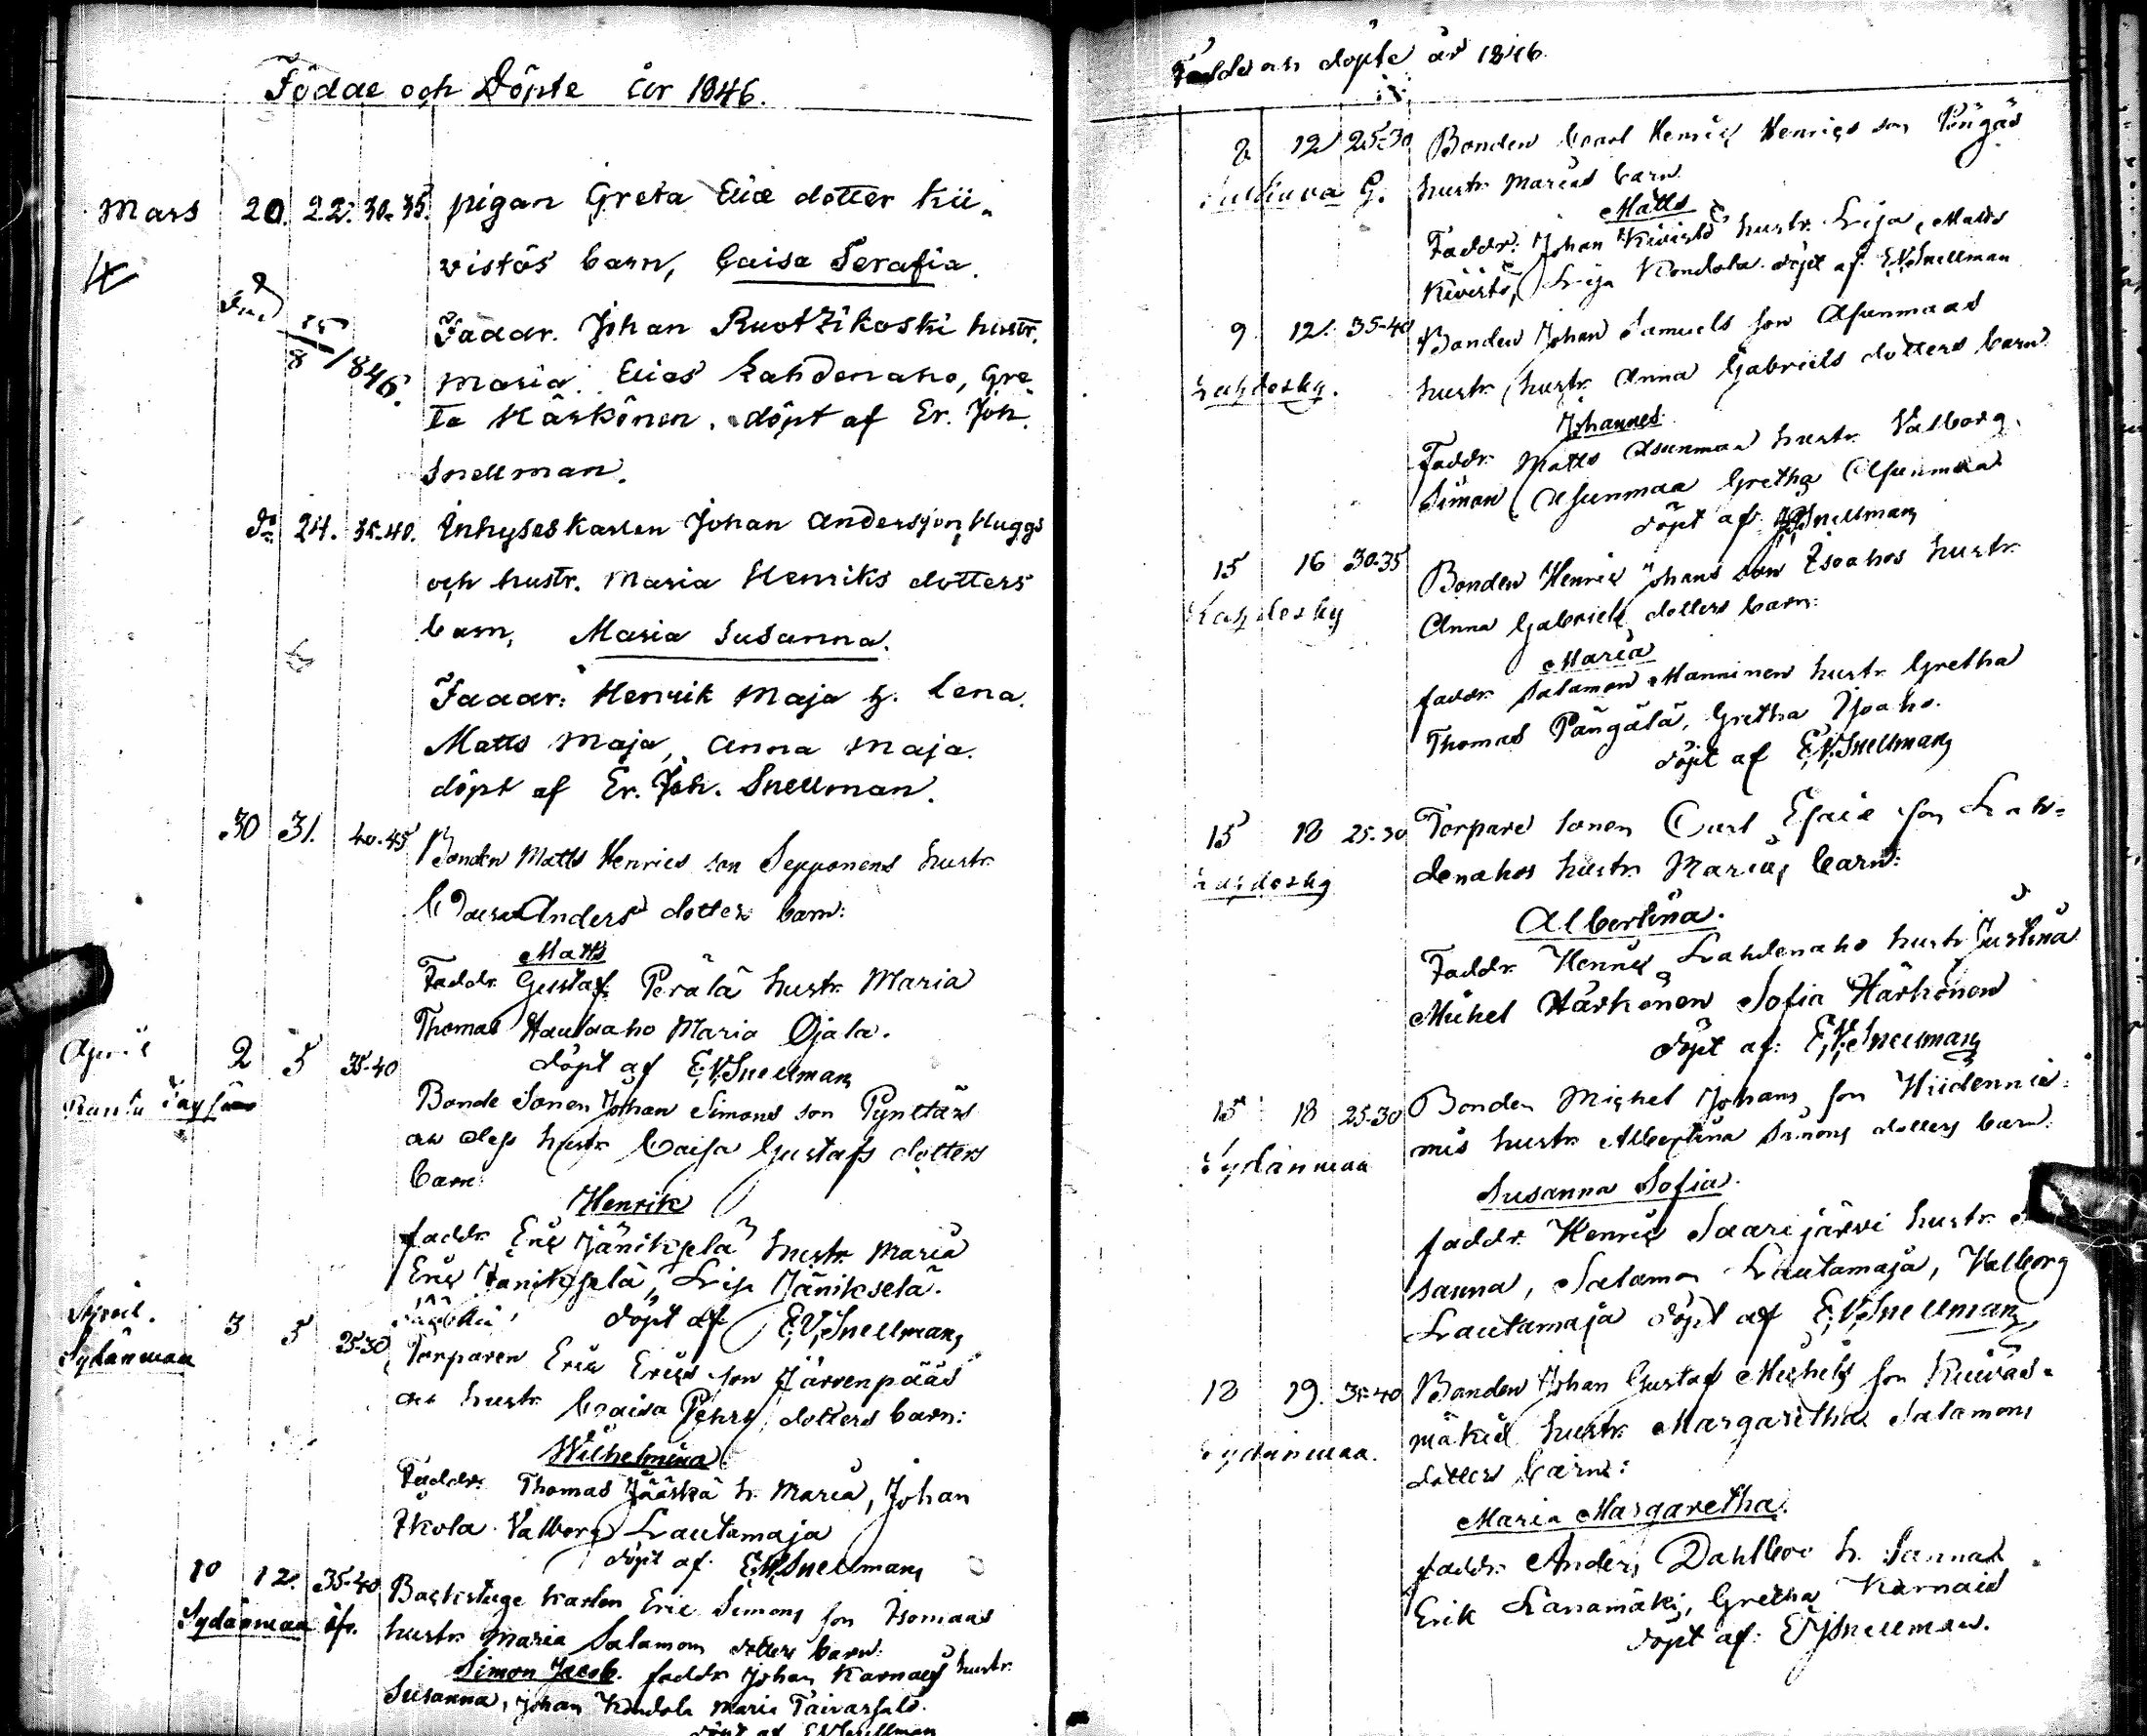 Födde och Döpte år 1846.
Mars 20. 22. 30-35. pigan Greta Eliæ dotter Kii-
vistös barn, Caisa Serafia.
Död Faddr. Johan Ruotzikoski hustr.
15/8 1846. Maria. Elias Lahdenaho, Gre-
ta Härkönen. döpt af Er. Joh.
Snellman.
do 24. 35-40. Inhyseskarlen Johan Andersson Huggs
och hustr. Maria Henriks dotters
barn, Maria Susanna.
Faddr: Henrik Maja h. Lena.
Matts Maja, Anna Maja.
döpt af Er. Joh. Snellman.
30 31. 40-45 Bonden Matts Henrics son Sepponens hustr.
Anders dotters barn:
Matts
Faddr. Gustaf Perälä hustr. Maria
Thomas Hautaaho Maria Ojala.
döpt af E.V. Snellman
April 2 5 35-40
Bonde Sonen Johan Simons son Pynttärs
och dess hustr. Caisa Gustafs dotters
barn:
Henrik
faddr. Eric Jänikselä hustr. Maria
Eric Jänikselä, Lisa Jänikselä.
döpt af E.V. Snellman
April. 3 5 25-30
Sydänmaa
Torparen Eric Erics son Järvenpääs
och hustr. Caisa Pehrs dotters barn:
Wilhelmina
Faddr. Thomas Jääskä h. Maria, Johan
Ikola Valborg Lautamaja
döpt af. E.V. Snellman
10 12. 35-40 Backstuge karlen Eric Simons son Isomaas
Sydänmaa hustr. Maria Salamons dotters barn:
Simon Jacob. faddr. Johan Karnais hustr.
Susanna, Johan Kondola Maria Taivarsalo.
döpt af E.V. Snellman
Födde och döpte år 1846.
8 12 25-30 Bonden Carl Henric Henrics son Pöngäs
hustr. Marias barn.
Matts
Faddr: Johan Kivistö hustr. Lisa, Matts
Kivistö, Lisa Kondola. döpt af E.V. Snellman
9. 12. 35-40 Bonden Johan Samuels son Asunmaas
hustr. hustr. Anna Gabriels dotters barn
Johannes.
Faddr. Matts Asunmaa hustr. Valborg.
Simon Asunmaa Gretha Asunmaa
döpt af. E.V. Snellman
15 16 30-35 Bonden Henric Johans son Isoahos hustr.
Anna Gabriels dotters barn:
Maria
faddr. Salamon Manninen hustr. Gretha
Thomas Pängälä, Gretha Isoaho.
döpt af E.V. Snellman
15 18 25-30 Torpare sonen Carl Esaiæ son Lah-
denahos hustr. Marias barn:
Albertina.
Faddr. Henric Lahdenaho hustr. Justina
Michel Härkönen Sofia Härkönen
döpt af: E.V. Snellman
15 18 25-30 Bonden Michel Johans son Hiidennie-
mis hustr. Albertina Simons dotters barn:
Sydänmaa
Susanna Sofia.
faddr. Henric Saarijärvi hustr.
sanna, Salamon Lautamaja, Valborg
Lautamaja döpt af E.V. Snellman
18 19. 35-40 Bonden Johan Gustaf Michels son Kuivas-
mäkis hustr. Margaretha Salamons
Sydänmaa. dotters barn:
Maria Margaretha.
faddr. Anders Dahlbo h. Sanna
Erik Lanamäki, Gretha Karnais
döpt af: E.J. Snellman.